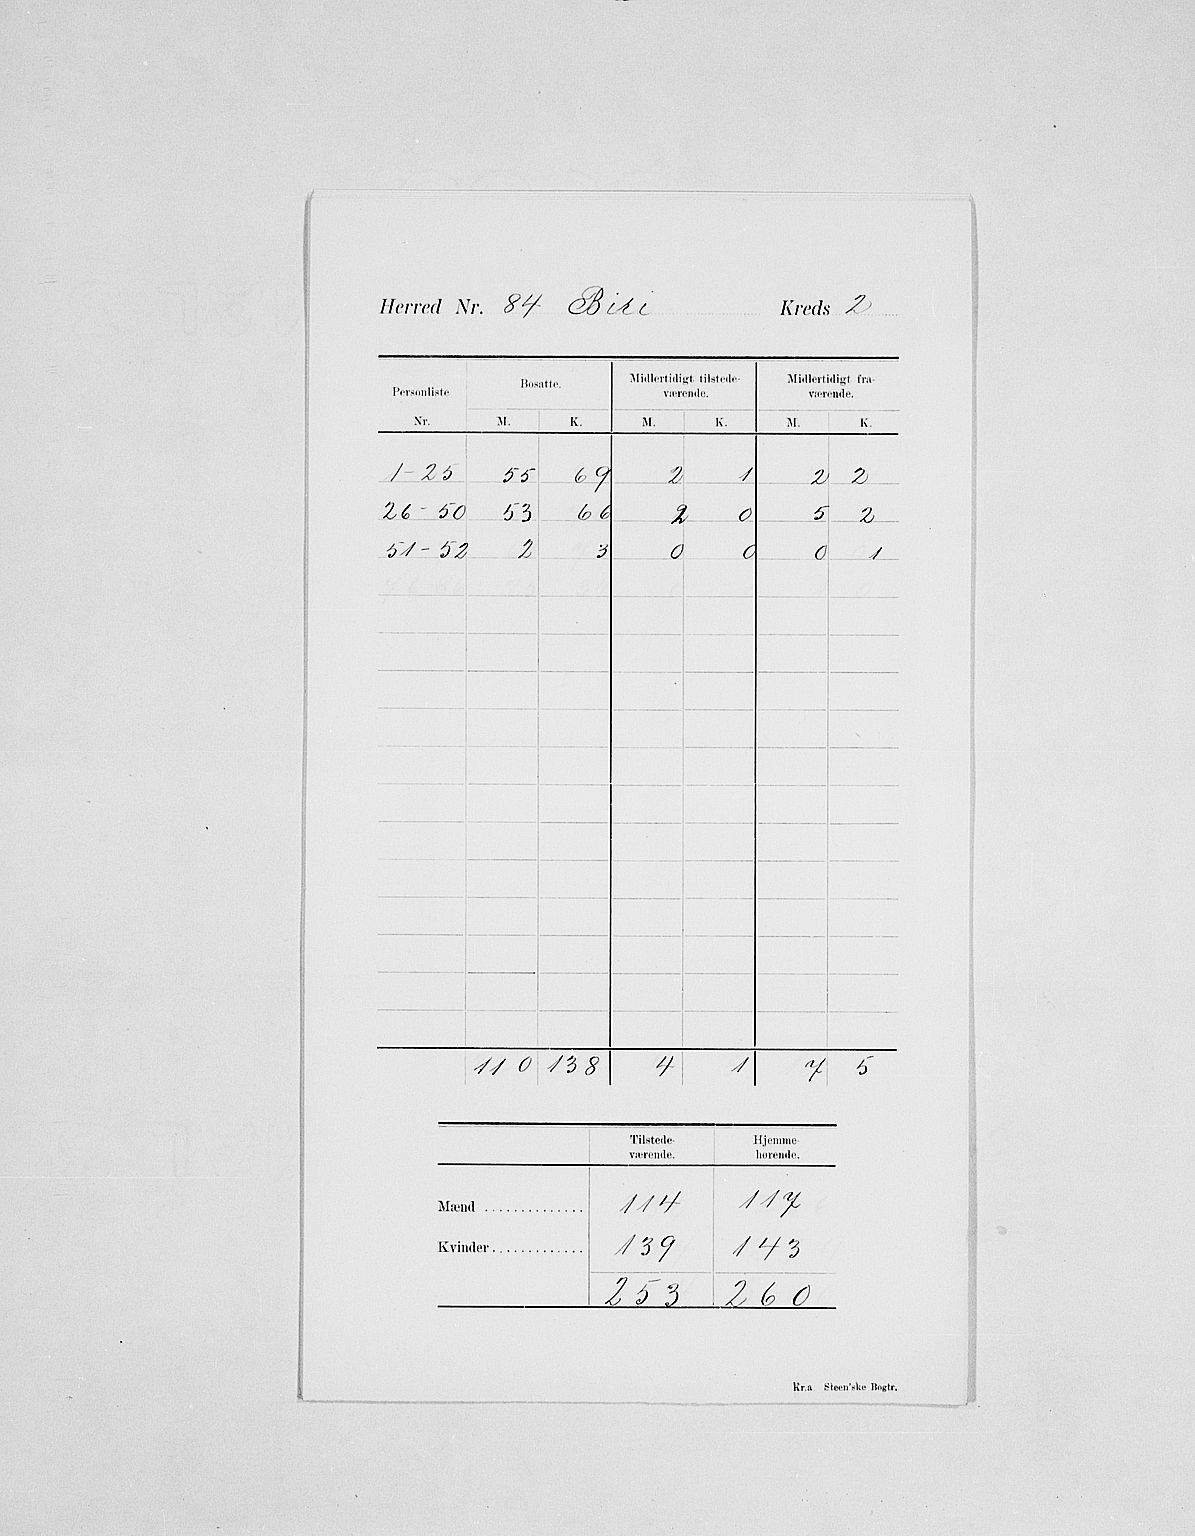 Herred Nr. 84 Biri Kreds 2
Personliste Nr. Bosatte. Midlertidigt tilstede- værende. Midlertidigt fra- værende.
M. K. M. K. M. K.
1-25 55 69 2 1 2 2
26-50 53 66 2 0 5 2
51-52 2 3 0 0 0 1
110 138 4 1 7 5
Tilstede- værende. Hjemme- hørende.
Mænd .............. 114 117
Kvinder ............. 139 143
253 260
Kr.a Steen'ske Bogtr.